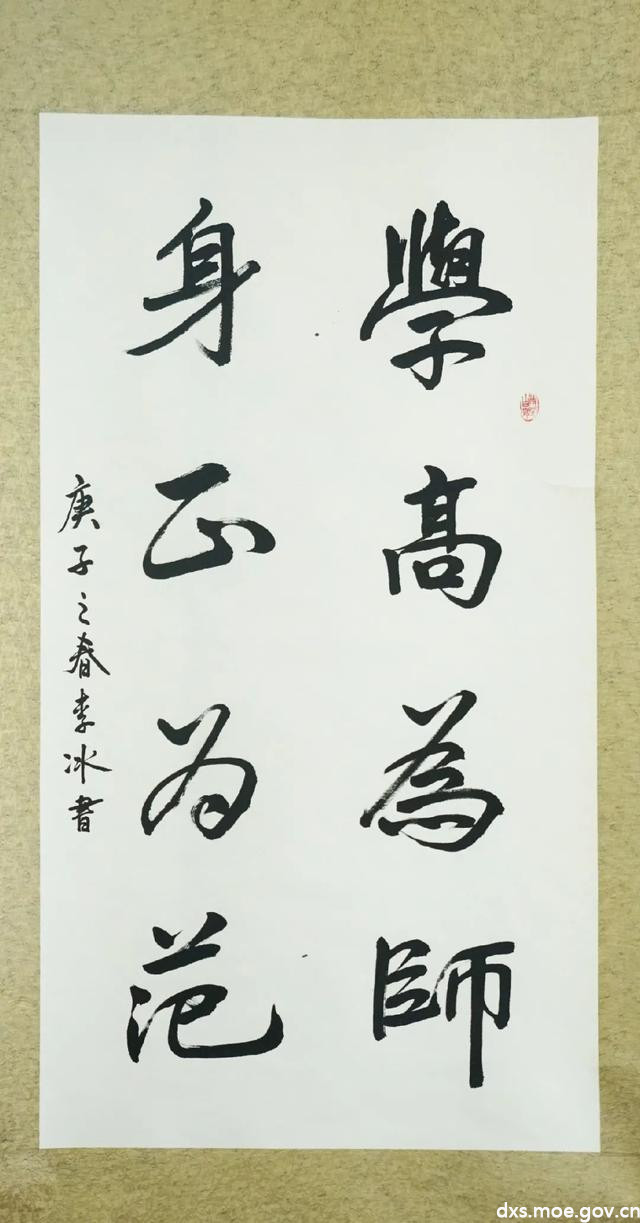 學高為師
身正为范
庚子之春李冰書
dxs.moe.gov.cn